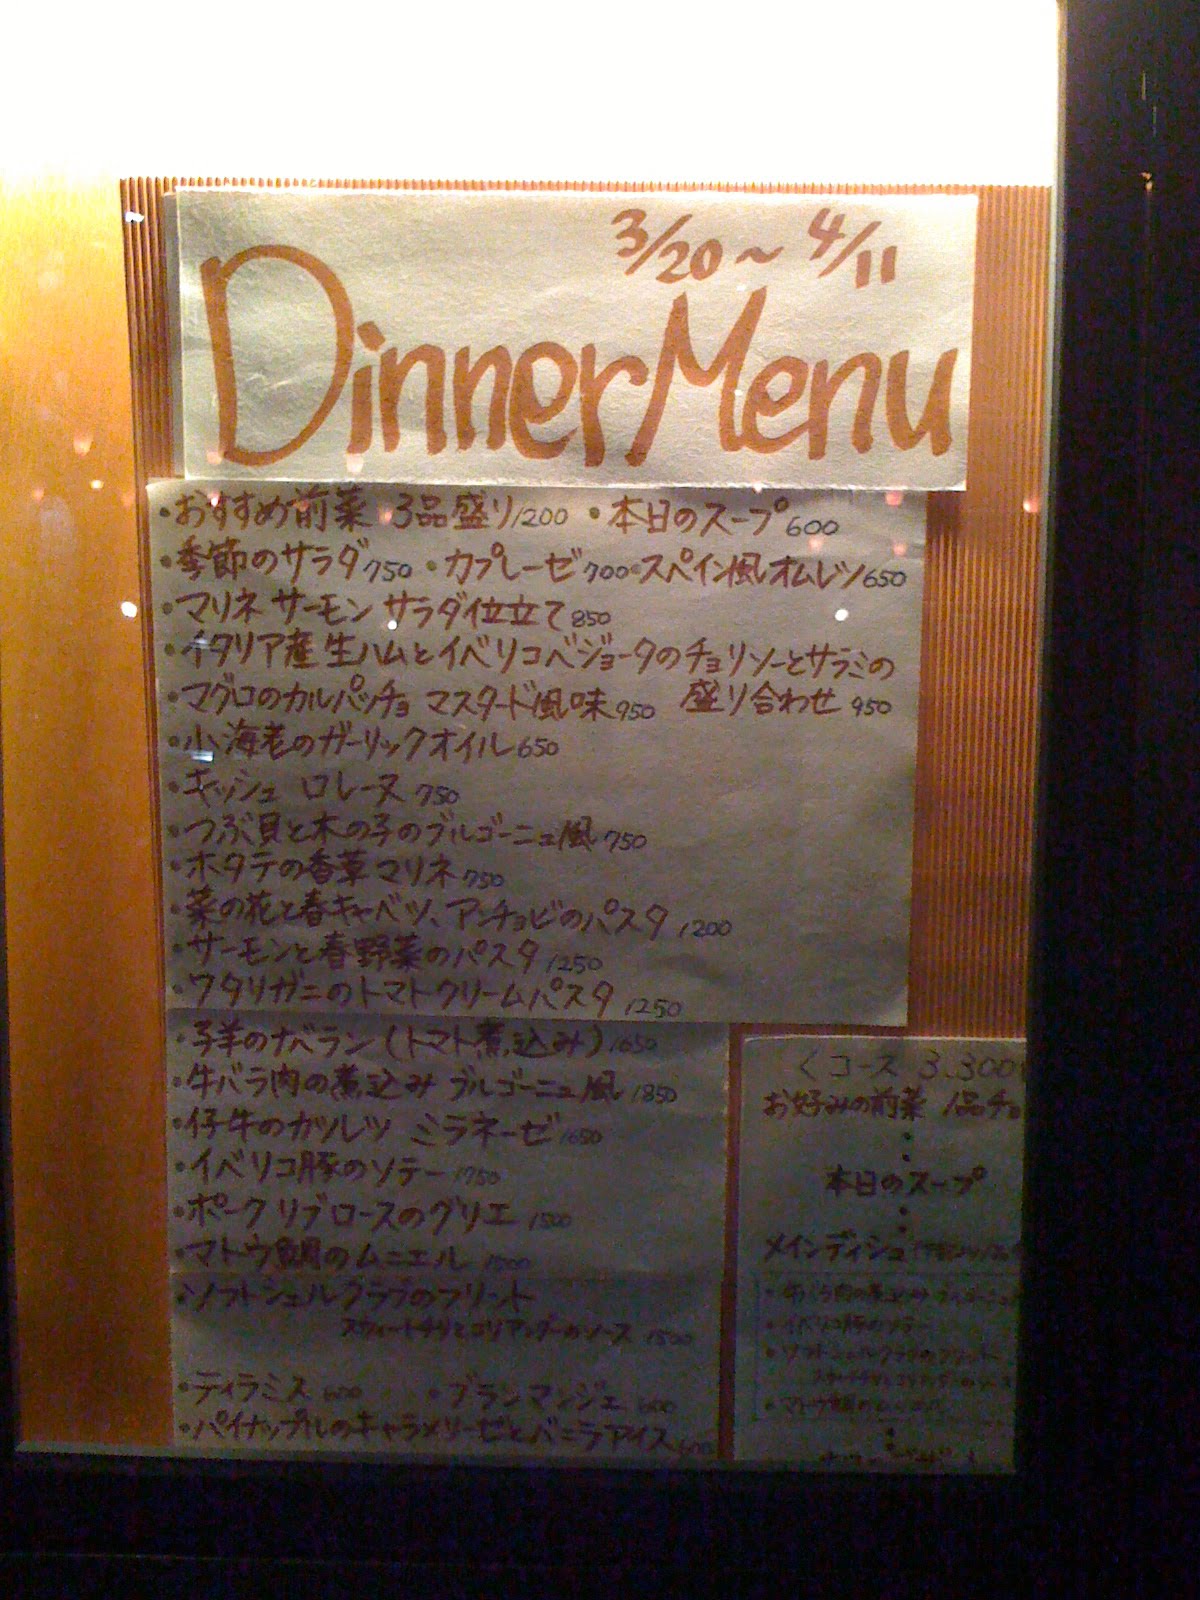 3/20～4/11
Dinner Menu
・おすすめ前菜 3品盛り1200 ・本日のスープ600
・季節のサラダ750 ・カプレーゼ700・スペイン風オムレツ650
・マリネサーモン サラダ仕立て850
・イタリア産生ハムとイベリコベジョータのチョリソーとサラミの
盛り合わせ 950
・マグロのカルパッチョ マスタード風味950
・小海老のガーリックオイル650
・キッシュ ロレーヌ 750
・つぶ貝と木の子のブルゴーニュ風750
・ホタテの香草マリネ750
・菜の花と春キャベツ、アンチョビのパスタ 1200
・サーモンと春野菜のパスタ 1250
・ワタリガニのトマトクリームパスタ 1250
・子羊のナバラン(トマト煮込み) 1650
・牛バラ肉の煮込み ブルゴーニュ風 1850
・仔牛のカツレツ ミラネーゼ1650
・イベリコ豚のソテー1750
・ポークリブロースのグリエ 1500
・マトウ鯛のムニエル 1500
・ソフトシェルクラブのフリット
スウィートチリとコリアンダーのソース 1500
・ティラミス 600 ・ブランマンジェ 600
・パイナップルのキャラメリーゼとバニラアイス600
くコース 3.300
お好みの前菜 1品チョ
本日のスープ
メインディシュ
・牛バラ肉の煮込み
・イベリコ豚のソテー
・ソフトシェルクラブのフリット
・マトウ鯛のムニエル